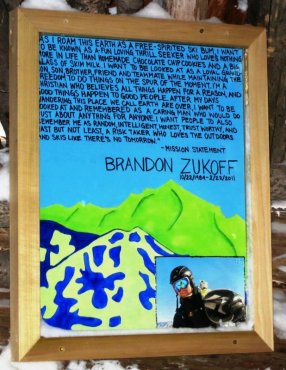 AS I ROAM THIS EARTH AS A FREE-SPIRITED SKI BUM, I WANT
TO BE KNOWN AS A FUN LOVING THRILL SEEKER WHO LOVES NOTHING
MORE IN LIFE THAN HOMEMADE CHOCOLATE CHIP COOKIES AND A BIG
GLASS OF SKIM MILK. I WANT TO BE LOOKED AT AS A LOYAL
SON, BROTHER, FRIEND AND TEAMMATE WHILE MAINTAINING THE
FREEDOM TO DO THINGS ON THE SPUR OF THE MOMENT. I'M A
CHRISTIAN WHO BELIEVES ALL THINGS HAPPEN FOR A REASON, AND
GOOD THINGS HAPPEN TO GOOD PEOPLE. AFTER MY DAYS
WANDERING THIS PLACE WE CALL EARTH ARE OVER, I WANT TO BE
LOOKED AT AND REMEMBERED AS A CARING MAN WHO WOULD DO
JUST ABOUT ANYTHING FOR ANYONE. I WANT PEOPLE TO ALSO
REMEMBER ME AS RANDOM, INTELLIGENT, HONEST, TRUST WORTHY, AND
LAST BUT NOT LEAST, A RISK TAKER WHO LOVES THE OUTDOORS
AND SKIS LIKE THERE'S NO TOMORROW.
-MISSION STATEMENT
BRANDON ZUKOFF
10/22/1984-2/23/2011